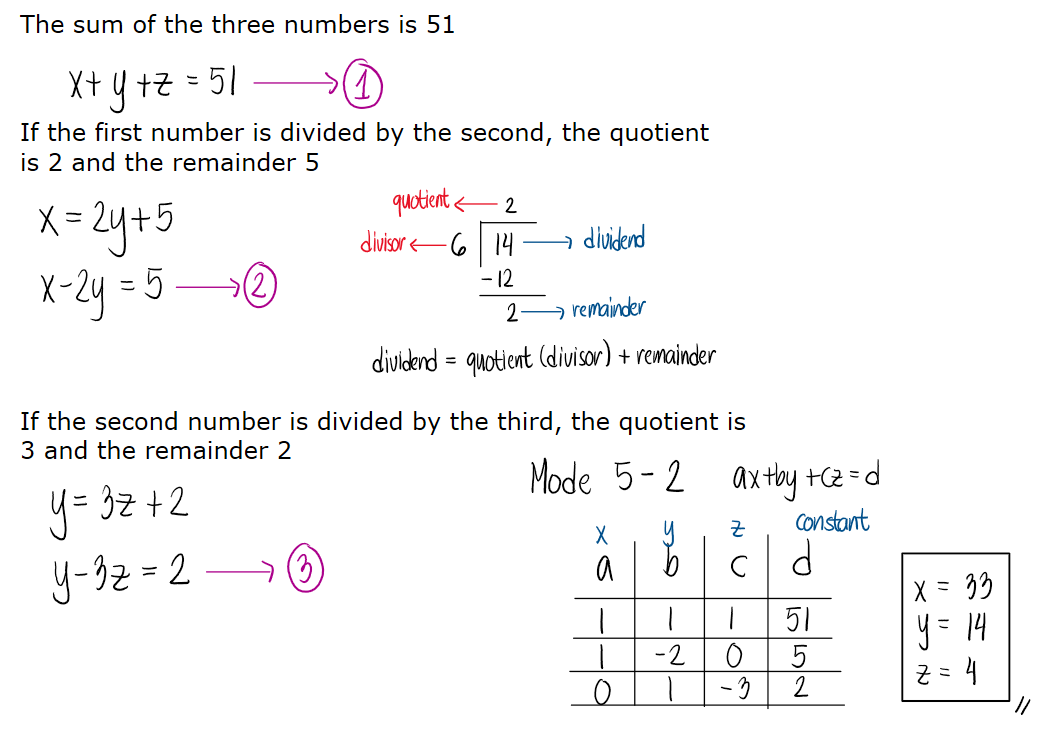 The sum of the three numbers is 51
x + y + z = 51 ⟶ ①
If the first number is divided by the second, the quotient
is 2 and the remainder 5
x = 2y + 5
x - 2y = 5 ⟶ ②
quotient ← 2
divisor ← 6 14 → dividend
-12
2 → remainder
dividend = quotient (divisor) + remainder
If the second number is divided by the third, the quotient is
3 and the remainder 2
y = 3z + 2
y - 3z = 2 ⟶ ③
Mode 5 - 2 ax + by + cz = d
x y z constant
a b c d
1 1 1 51
1 -2 0 5
0 1 -3 2
x = 33
y = 14
z = 4
//